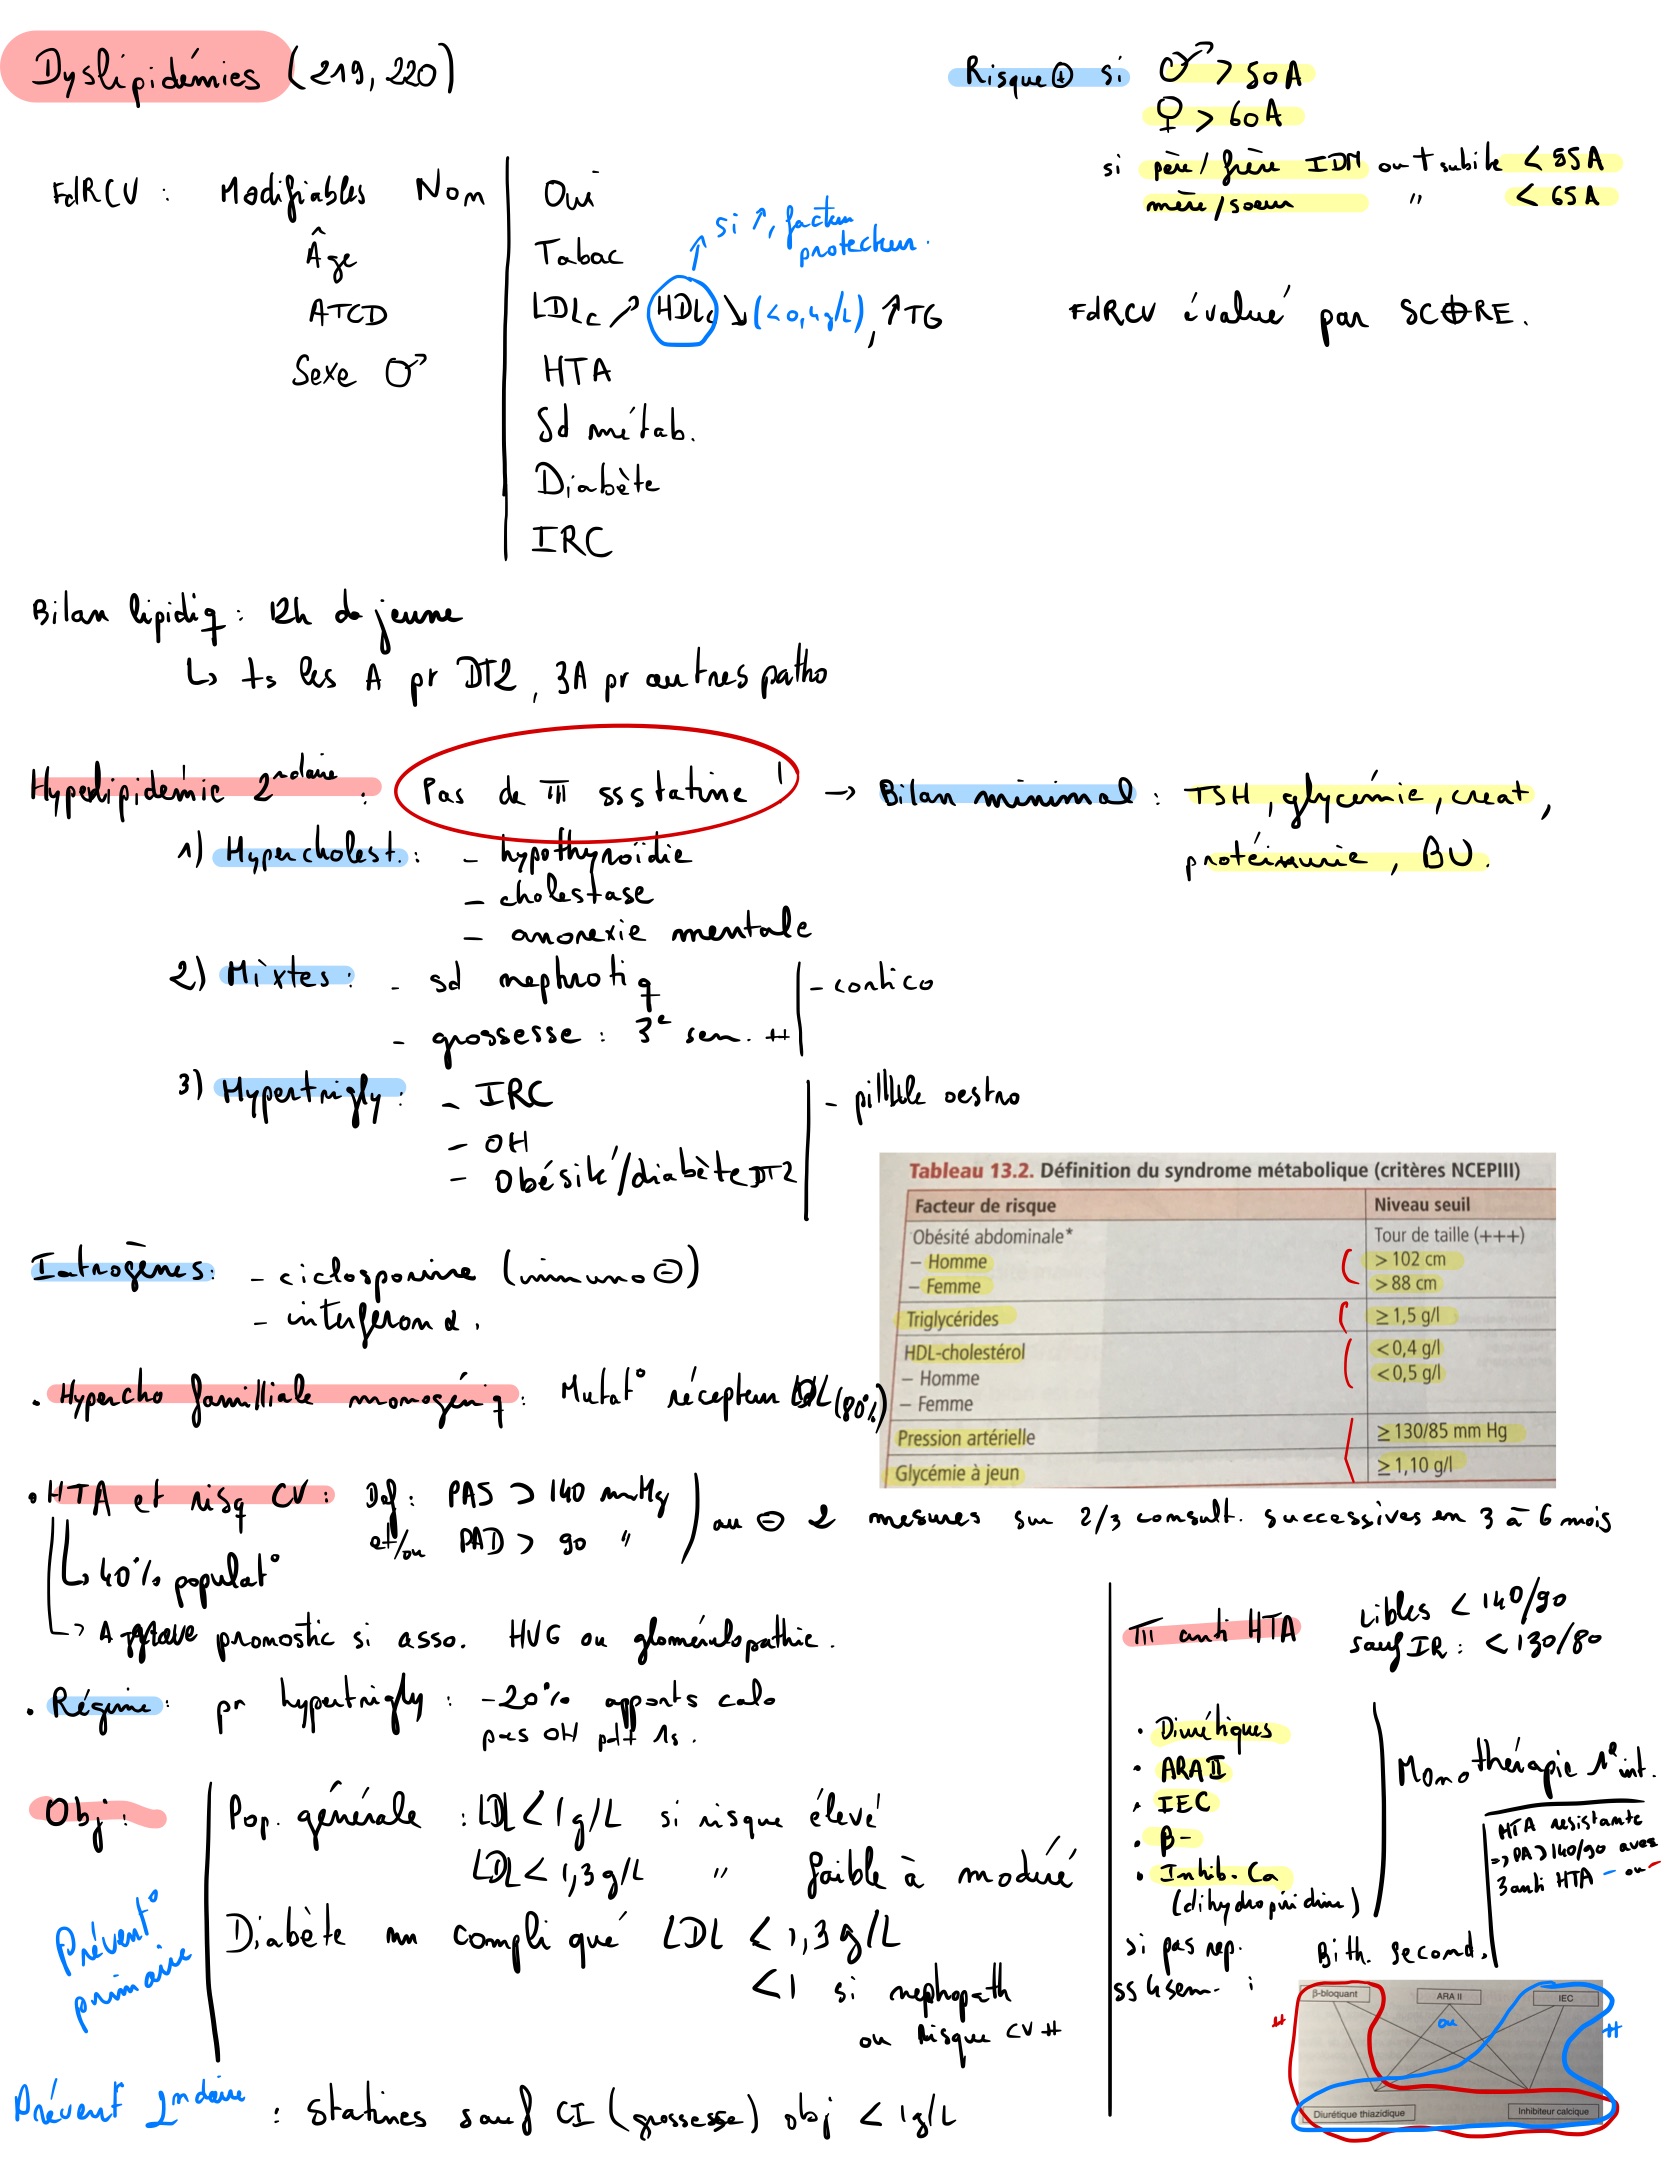 Dyslipidémies (219, 220)
Risque ⊕ si ♂ > 50A
♀ > 60A
si père/frère IDM ou † subite < 55A
mère/soeur " < 65A
FdRCV : Modifiables Non | Oui
Âge
ATCD
Sexe ♂
Tabac
LDLc ↗ HDLc ↘ (<0,4g/L), ↑TG
si ↑, facteur
protecteur.
HTA
Sd métab.
Diabète
IRC
FdRCV évalué par SCORE.
Bilan lipidiq : 12h de jeune
↳ ts les A pr DT2, 3A pr autres patho
Hyperlipidémie 2ndaire : Pas de TTT ss statine ! → Bilan minimal : TSH, glycémie, creat,
protéinurie, BU.
1) Hypercholest. : - hypothyroïdie
- cholestase
- anorexie mentale
2) Mixtes : - sd nephrotiq
- grossesse : 3e sem. ++
- cortico
3) Hypertrigly : - IRC
- OH
- Obésité/diabète DT2
- pillule oestro
Tableau 13.2. Définition du syndrome métabolique (critères NCEPIII)
Facteur de risque Niveau seuil
Obésité abdominale* Tour de taille (+++)
– Homme > 102 cm
– Femme > 88 cm
Triglycérides ≥ 1,5 g/l
HDL-cholestérol <0,4 g/l
– Homme <0,5 g/l
– Femme
Pression artérielle ≥ 130/85 mm Hg
Glycémie à jeun ≥ 1,10 g/l
Iatrogènes : - ciclosporine (immuno ⊖)
- interferon α.
. Hypercho familliale monogéniq : Mutat° récepteur LDL (80%)
. HTA et risq CV : Def : PAS > 140 mmHg
et/ou PAD > 90 "
au ⊖ 2 mesures sur 2/3 consult. successives en 3 à 6 mois
↳ 40% populat°
↳ Aggrave pronostic si asso. HVG ou glomérulopathie.
. Régime : pr hypertrigly : -20% apports calo
pas OH pdt 1s.
Obj : Pop. générale : LDL < 1g/L si risque élevé
LDL < 1,3g/L " faible à modéré
Prévent°
primaire
Diabète nn compliqué LDL < 1,3g/L
< 1 si nephopath
ou risque CV ++
Prévent° 2ndaire : statines sauf CI (grossesse) obj < 1g/L
TTT anti HTA cibles < 140/90
sauf IR : < 130/80
· Diurétiques
· ARA II
· IEC
· β-
· Inhib. Ca
(dihydropiridine)
Monothérapie 1e int.
HTA resistante
=> PA > 140/90 avec
3 anti HTA - ou -
si pas rep. Bith. second.
ss 4 sem. :
β-bloquant ARA II IEC
ou
++
++
Diurétique thiazidique Inhibiteur calcique